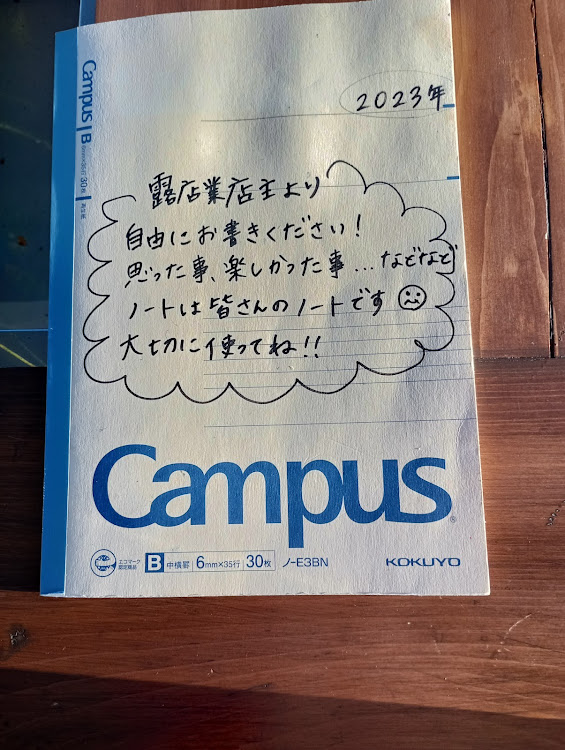 Campus | B 30枚
2023年
露店業店主より
自由にお書きください!
思った事、楽しかった事...などなど
ノートは皆さんのノートです
大切に使ってね!!
Campus
エコマーク
認定商品
B 中横罫 6mm×35行 30枚 ノ-E3BN KOKUYO